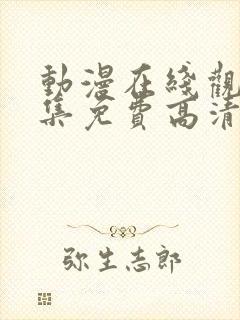 動漫在綫觀
集免費高清
弥生志郎